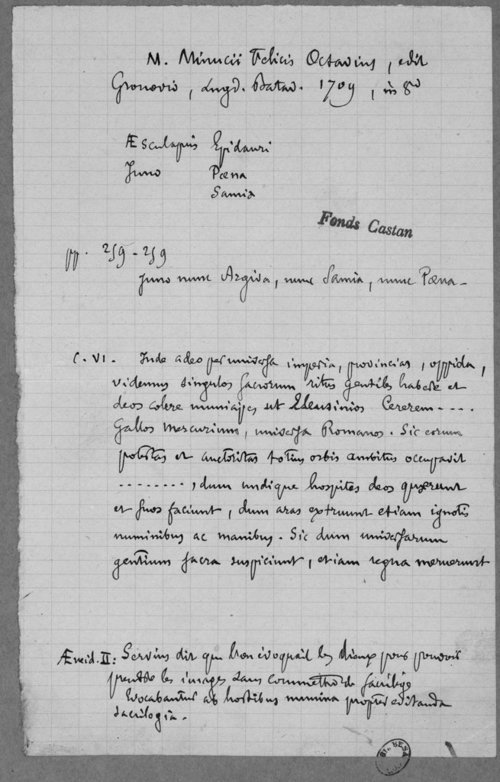 M. Minucii Felicis Octavius, edit
Gronovio, Lugd. Batav. 1709, in 8º
Æsculapius Epidauri
Juno Pœna
Samia
Fonds Castan
pp. 259-259
Juno nunc Argiva, nunc Samia, nunc Pœna -
C. VI. Inde adeo per universa imperia, provincias, oppida,
videmus singulos sacrorum ritus gentiles habere et
deos colere municipes ut Eleusinios Cererem ....
Gallos Mercurium, universa Romanos. Sic eorum
potestas et auctoritas totius orbis ambitus occupavit
........., dum undique hospites deos quærunt
et suos faciunt, dum aras extruunt etiam ignotis
numinibus ac manibus. Sic dum universarum
gentium sacra suspiciunt, etiam regna meruerunt
Æneid. II: Servius dit que l'on évoquait les dieux pour pouvoir
prendre les images sans commettre de sacrilège
Evocabantur ab hostibus numina propter evitanda
sacrilegia.